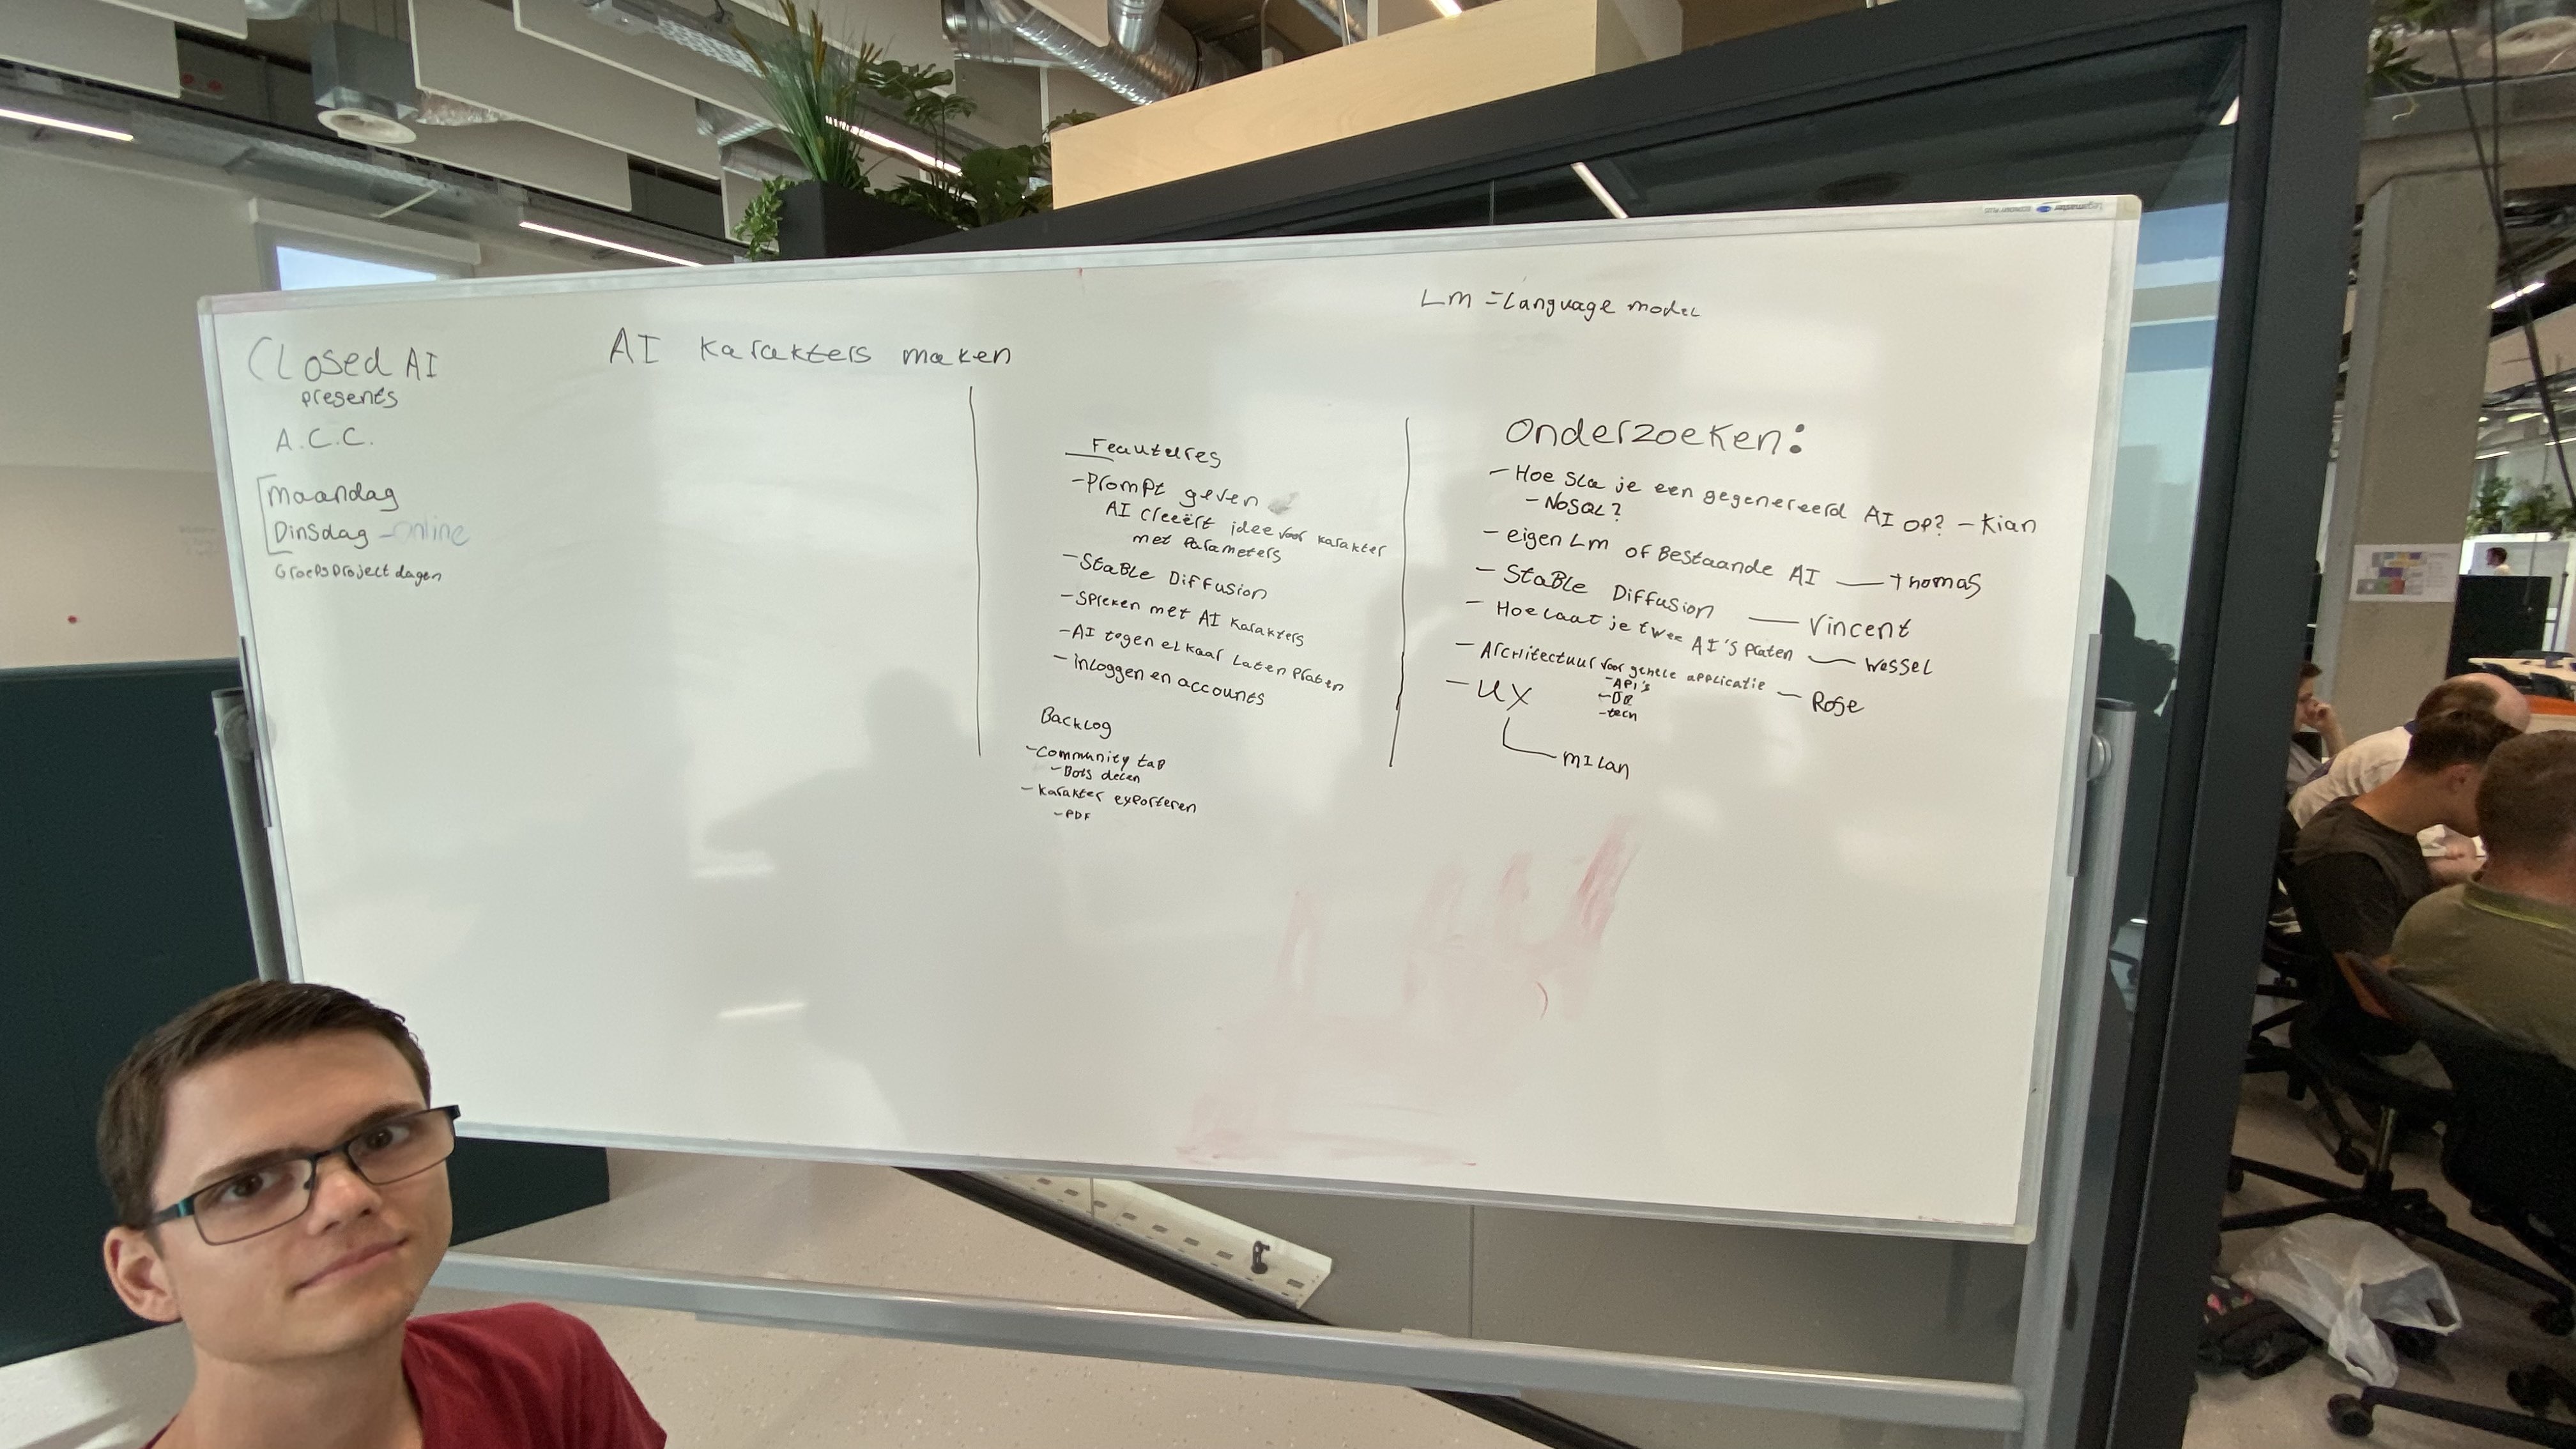 CLosed AI
presents
A.C.C.
maandag
Dinsdag - online
Groepsproject dagen
AI karakters maken
Lm = Language model
Feautures
- Prompt geven
AI creeërt idee voor karakter
met Parameters
- StaBLe Diffusion
- spreken met AI karakters
- AI tegen elkaar Laten Praten
- inloggen en accounts
Backlog
- community taB
- Bots delen
- karakter exporteren
- PDF
Onderzoeken:
- Hoe sla je een gegenereerd AI op? - Kian
- NoSQL?
- eigen Lm of Bestaande AI - Thomas
- StaBLe Diffusion - Vincent
- Hoe laat je twee AI's Praten - Wessel
- Architectuur voor gehele applicatie -
- API's
- DB
- tech
- UX
- milan